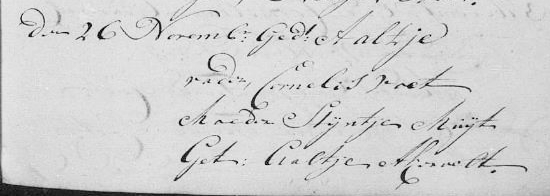 den 26 Novemb: Ged: Aaltje
vader, Cornelis voet
Moeder Stijntje Muijt
Get: Aaltje